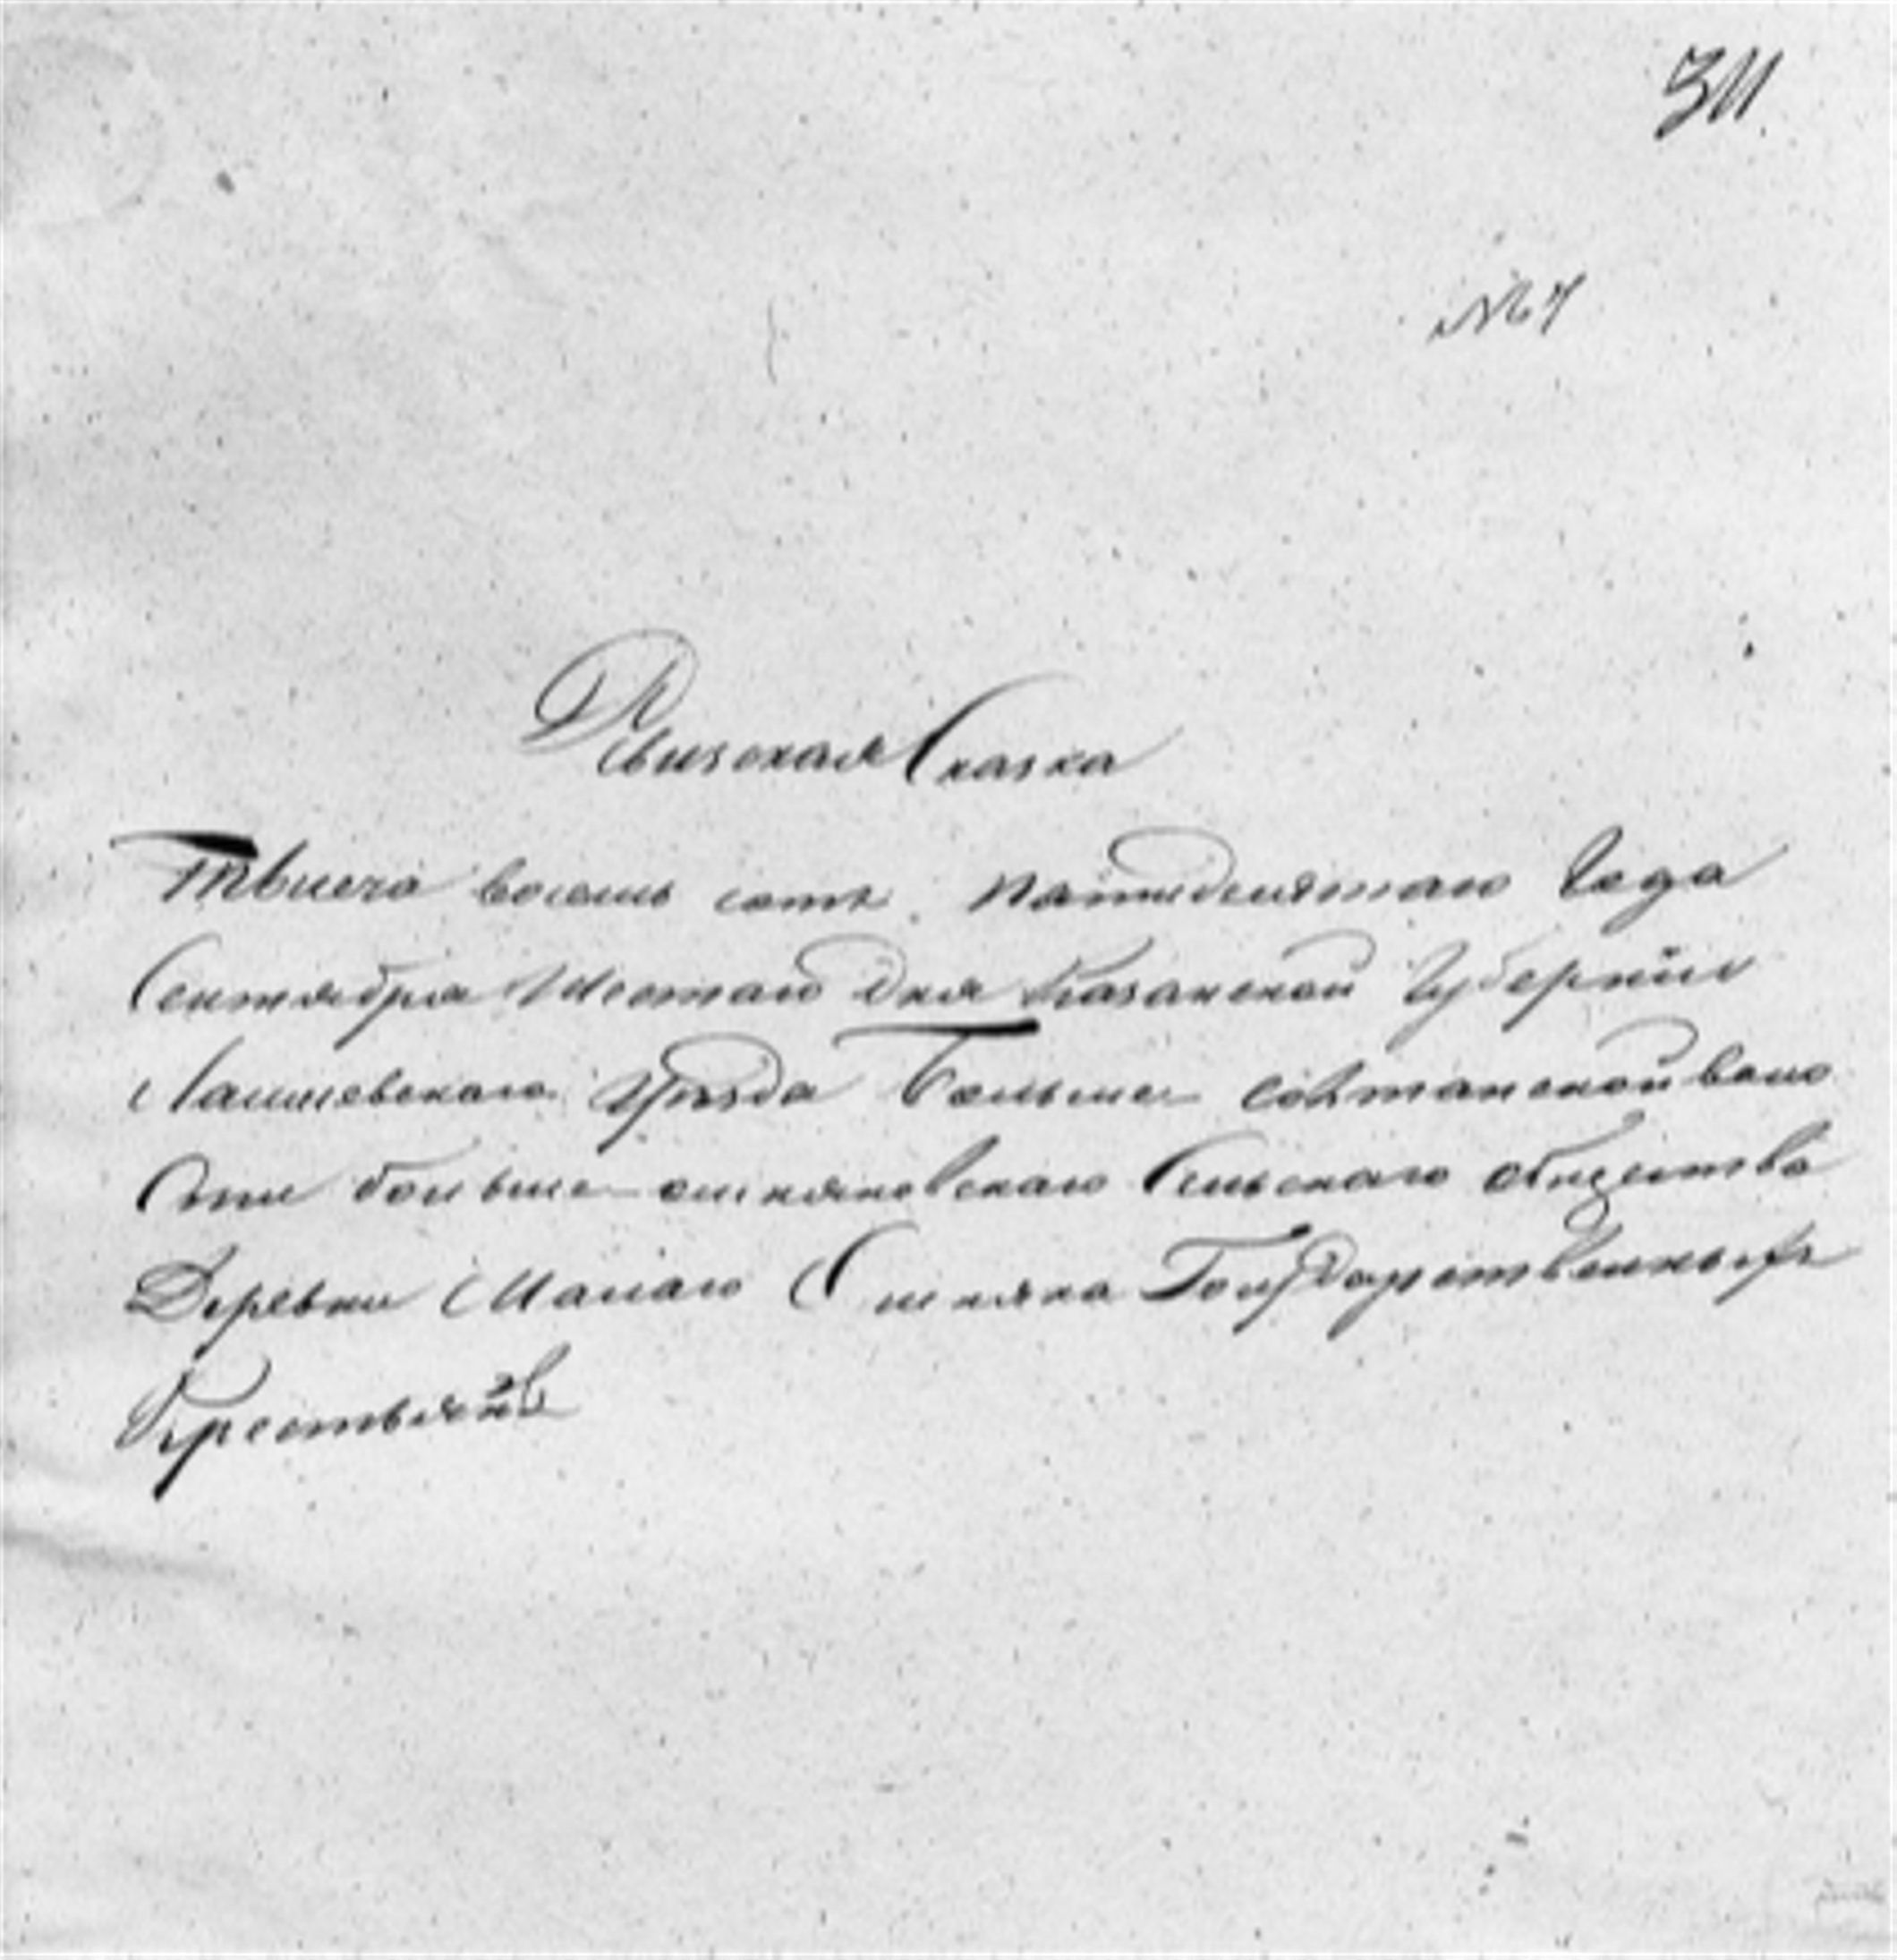 311.
№ 7
Ревизская Сказка
Тысеча восемь сотъ пятидесятаго Года
Сентября Шестаго дня Казанской Губернiи
Лаишевскаго Уѣзда Больше Совтанской воло
Сти больше ошняковскаго Сельскаго общества
Деревни Малаго Ошняка Государственныхъ
Крестьянъ